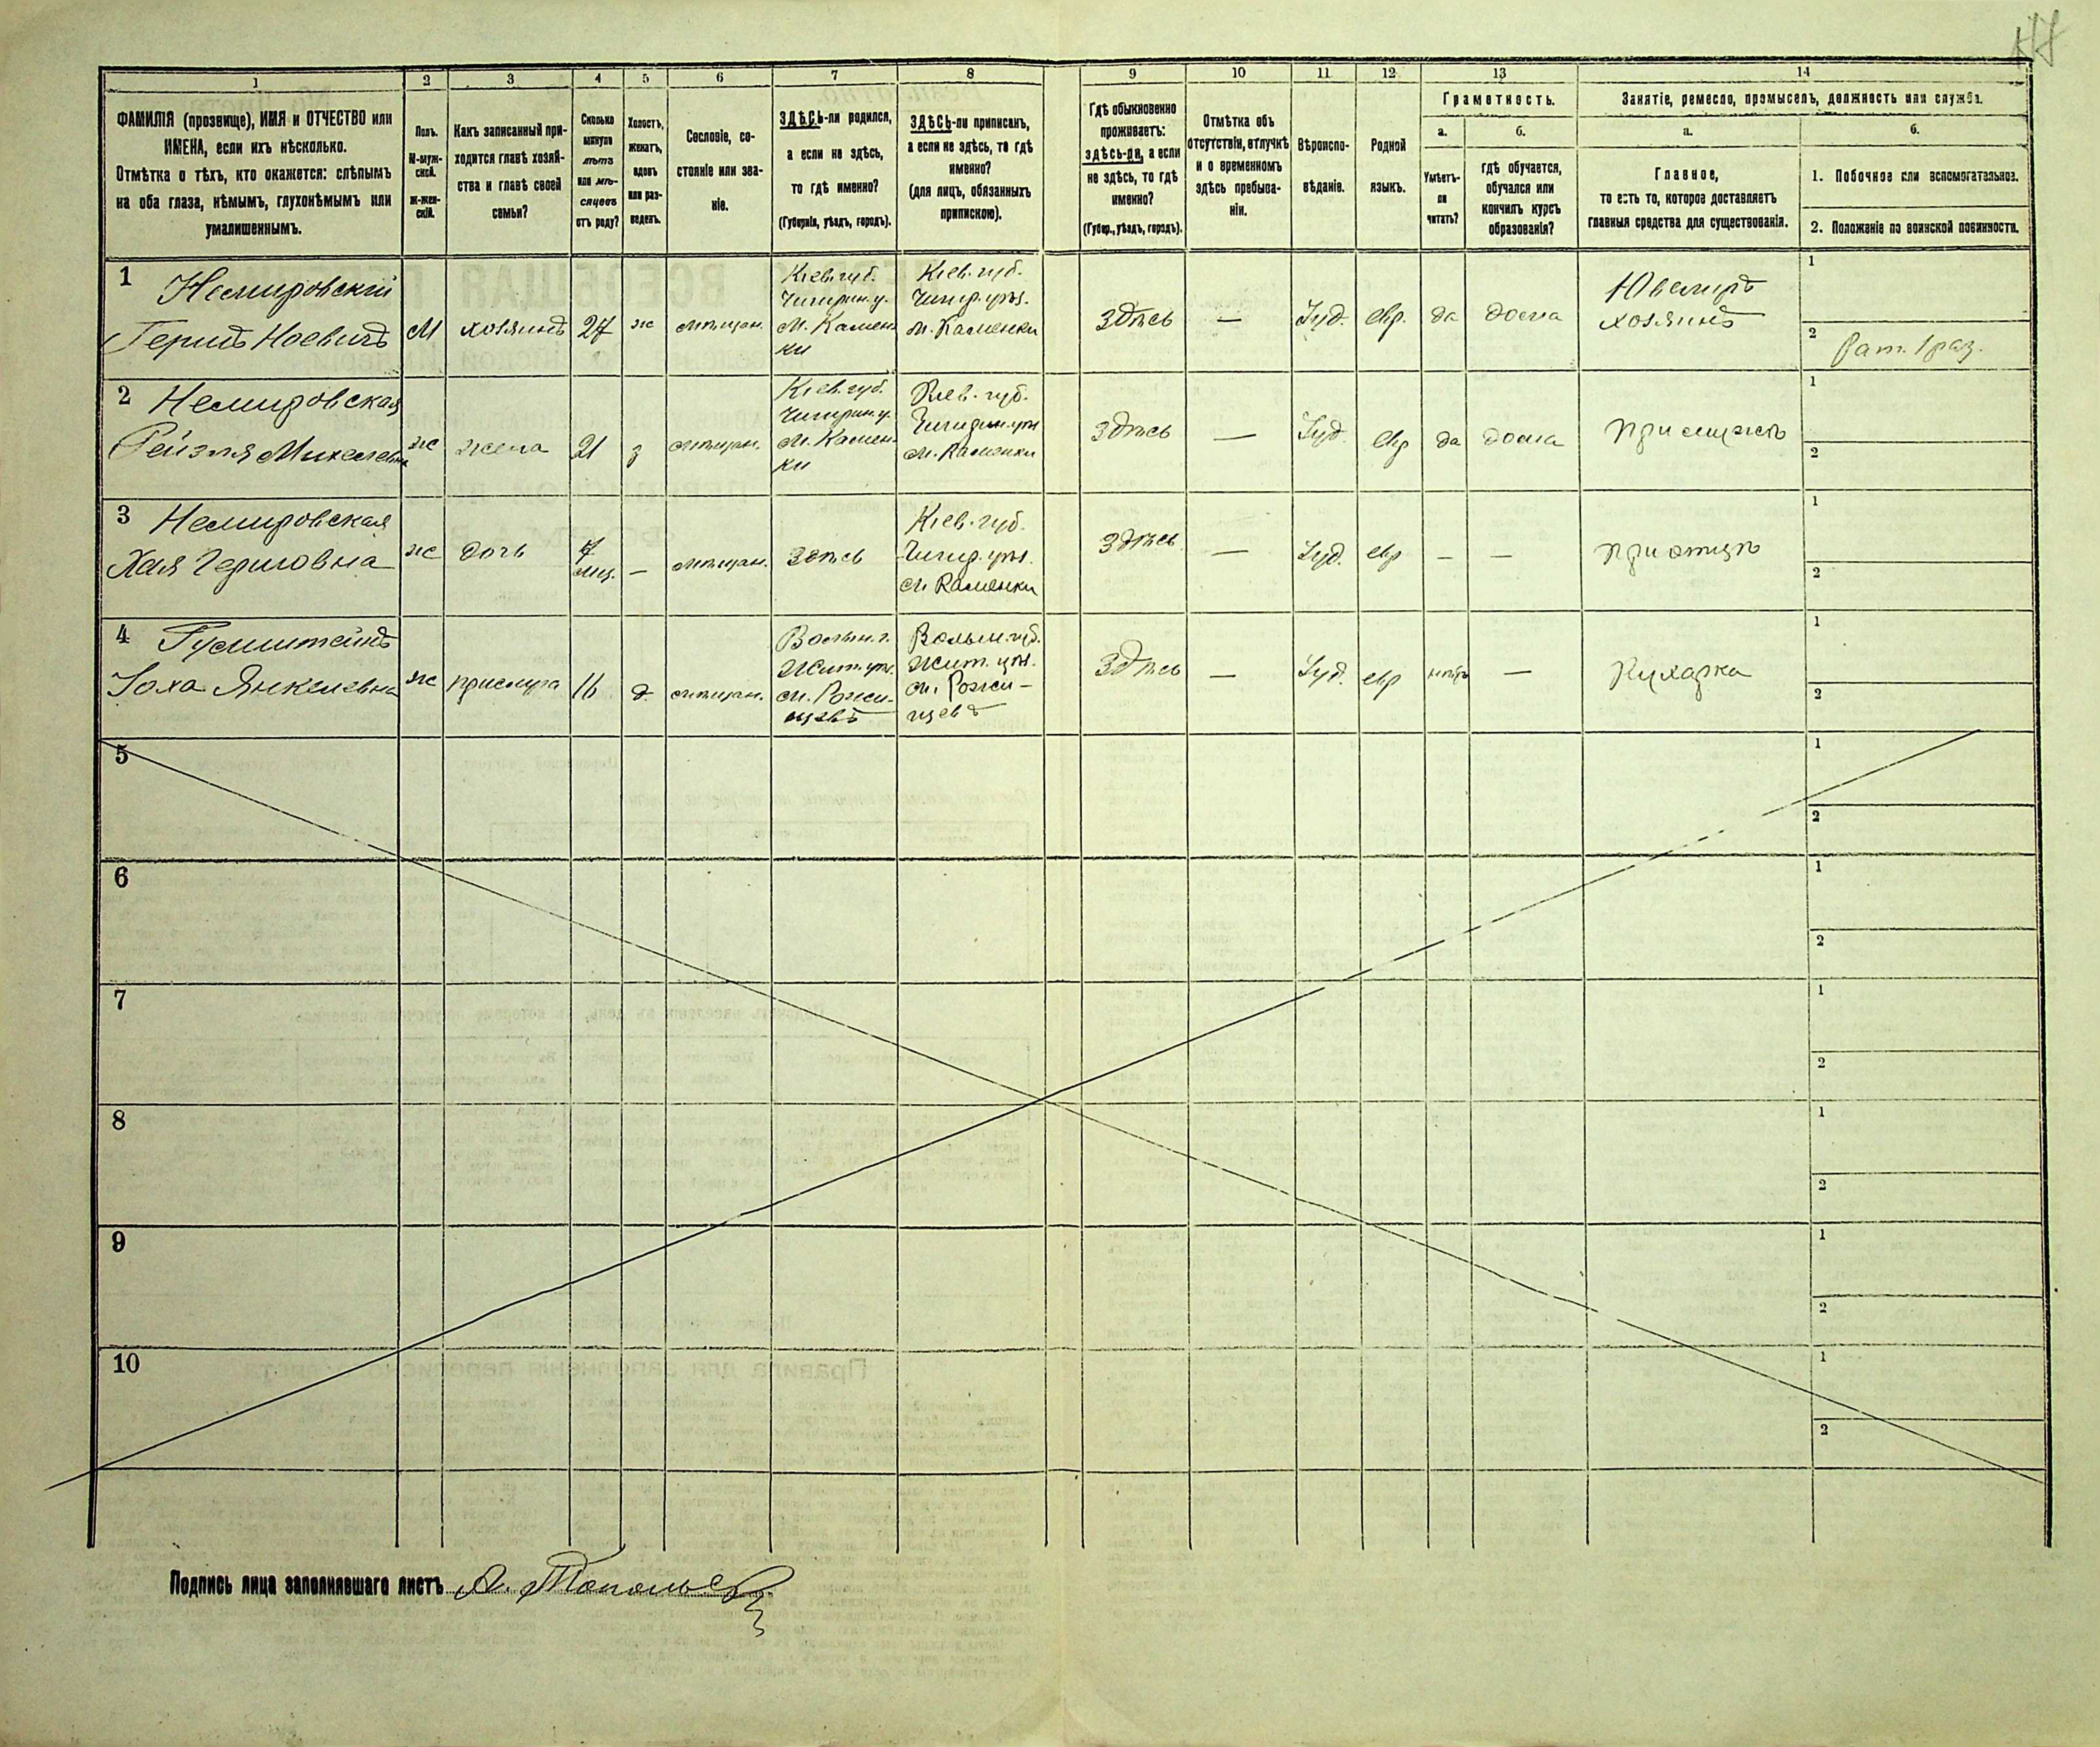 1 2 3 4 5 6 7 8 9 10 11 12 13 14
ФАМИЛІЯ (прозвище), ИМЯ и ОТЧЕСТВО или
ИМЕНА, если ихъ нѣсколько.
Отмѣтка о тѣхъ, кто окажется: слѣпымъ
на оба глаза, нѣмымъ, глухонѣмымъ или
умалишеннымъ.
Полъ.
М-муж-
ской.
Ж-жен-
скій.
Какъ записанный при-
ходится главѣ хозяй-
ства и главѣ своей
семьи?
Сколько
минуло
лѣтъ
или мѣ-
сяцевъ
отъ роду?
Холостъ,
женатъ,
вдовъ
или раз-
веденъ.
Сословіе, со-
стояніе или зва-
ніе.
ЗДѢСЬ-ли родился,
а если не здѣсь,
то гдѣ именно?
(Губернія, уѣздъ, городъ).
ЗДѢСЬ-ли приписанъ,
а если не здѣсь, то гдѣ
именно?
(для лицъ, обязанныхъ
припискою).
Гдѣ обыкновенно
проживаетъ:
здѣсь-ли, а если
не здѣсь, то гдѣ
именно?
(Губер., уѣздъ, городъ).
Отмѣтка объ
отсутствіи, отлучкѣ
и о временномъ
здѣсь пребыва-
ніи.
Вѣроиспо-
вѣданіе.
Родной
языкъ.
Грамотность.
а.
Умѣетъ-
ли
читать?
б.
гдѣ обучается,
обучался или
кончилъ курсъ
образованія?
Занятіе, ремесло, промыселъ, должность или служба.
а.
Главное,
то есть то, которое доставляетъ
главныя средства для существованія.
б.
1. Побочное или вспомогательное.
2. Положеніе по воинской повинности.
1 Немировскій
Гершъ Ноевичъ
М
хозяинъ
27
ж
мѣщан.
Кіев. губ.
Чигирин. у.
м. Камен-
ки
Кіев. губ.
Чигир. уѣз.
м. Каменки
Здѣсь
—
Іуд.
евр.
да
дома
Ювелиръ
хозяинъ
1
2 Рат. 1 раз.
2 Немировская
Рейзля Михелевна
ж
жена
21
з
мѣщан.
Кіев. губ.
Чигирин. у.
м. Камен-
ки
Кіев. губ.
Чигирин. уѣз
м. Каменки
Здѣсь
—
Іуд.
евр
да
дома
при мужѣ
1
2
3 Немировская
Хая Гершовна
ж
дочь
7
мц.
—
мѣщан.
Здѣсь
Кіев. губ.
Чигир. уѣз.
м. Каменки
Здѣсь
—
Іуд.
евр
—
—
при отцѣ
1
2
4
Янкелевна
ж
прислуга
16
д.
мѣщан.
Волын. г.
Жит. уѣз.
м. Рожи-
щевъ
Волын. губ.
Жит. уѣз.
м. Рожи-
щевъ
Здѣсь
—
Іуд.
евр
нѣтъ
—
Кухарка
1
2
5
1
2
6
1
2
7
1
2
8
1
2
9
1
2
10
1
2
Подпись лица заполнявшаго листъ